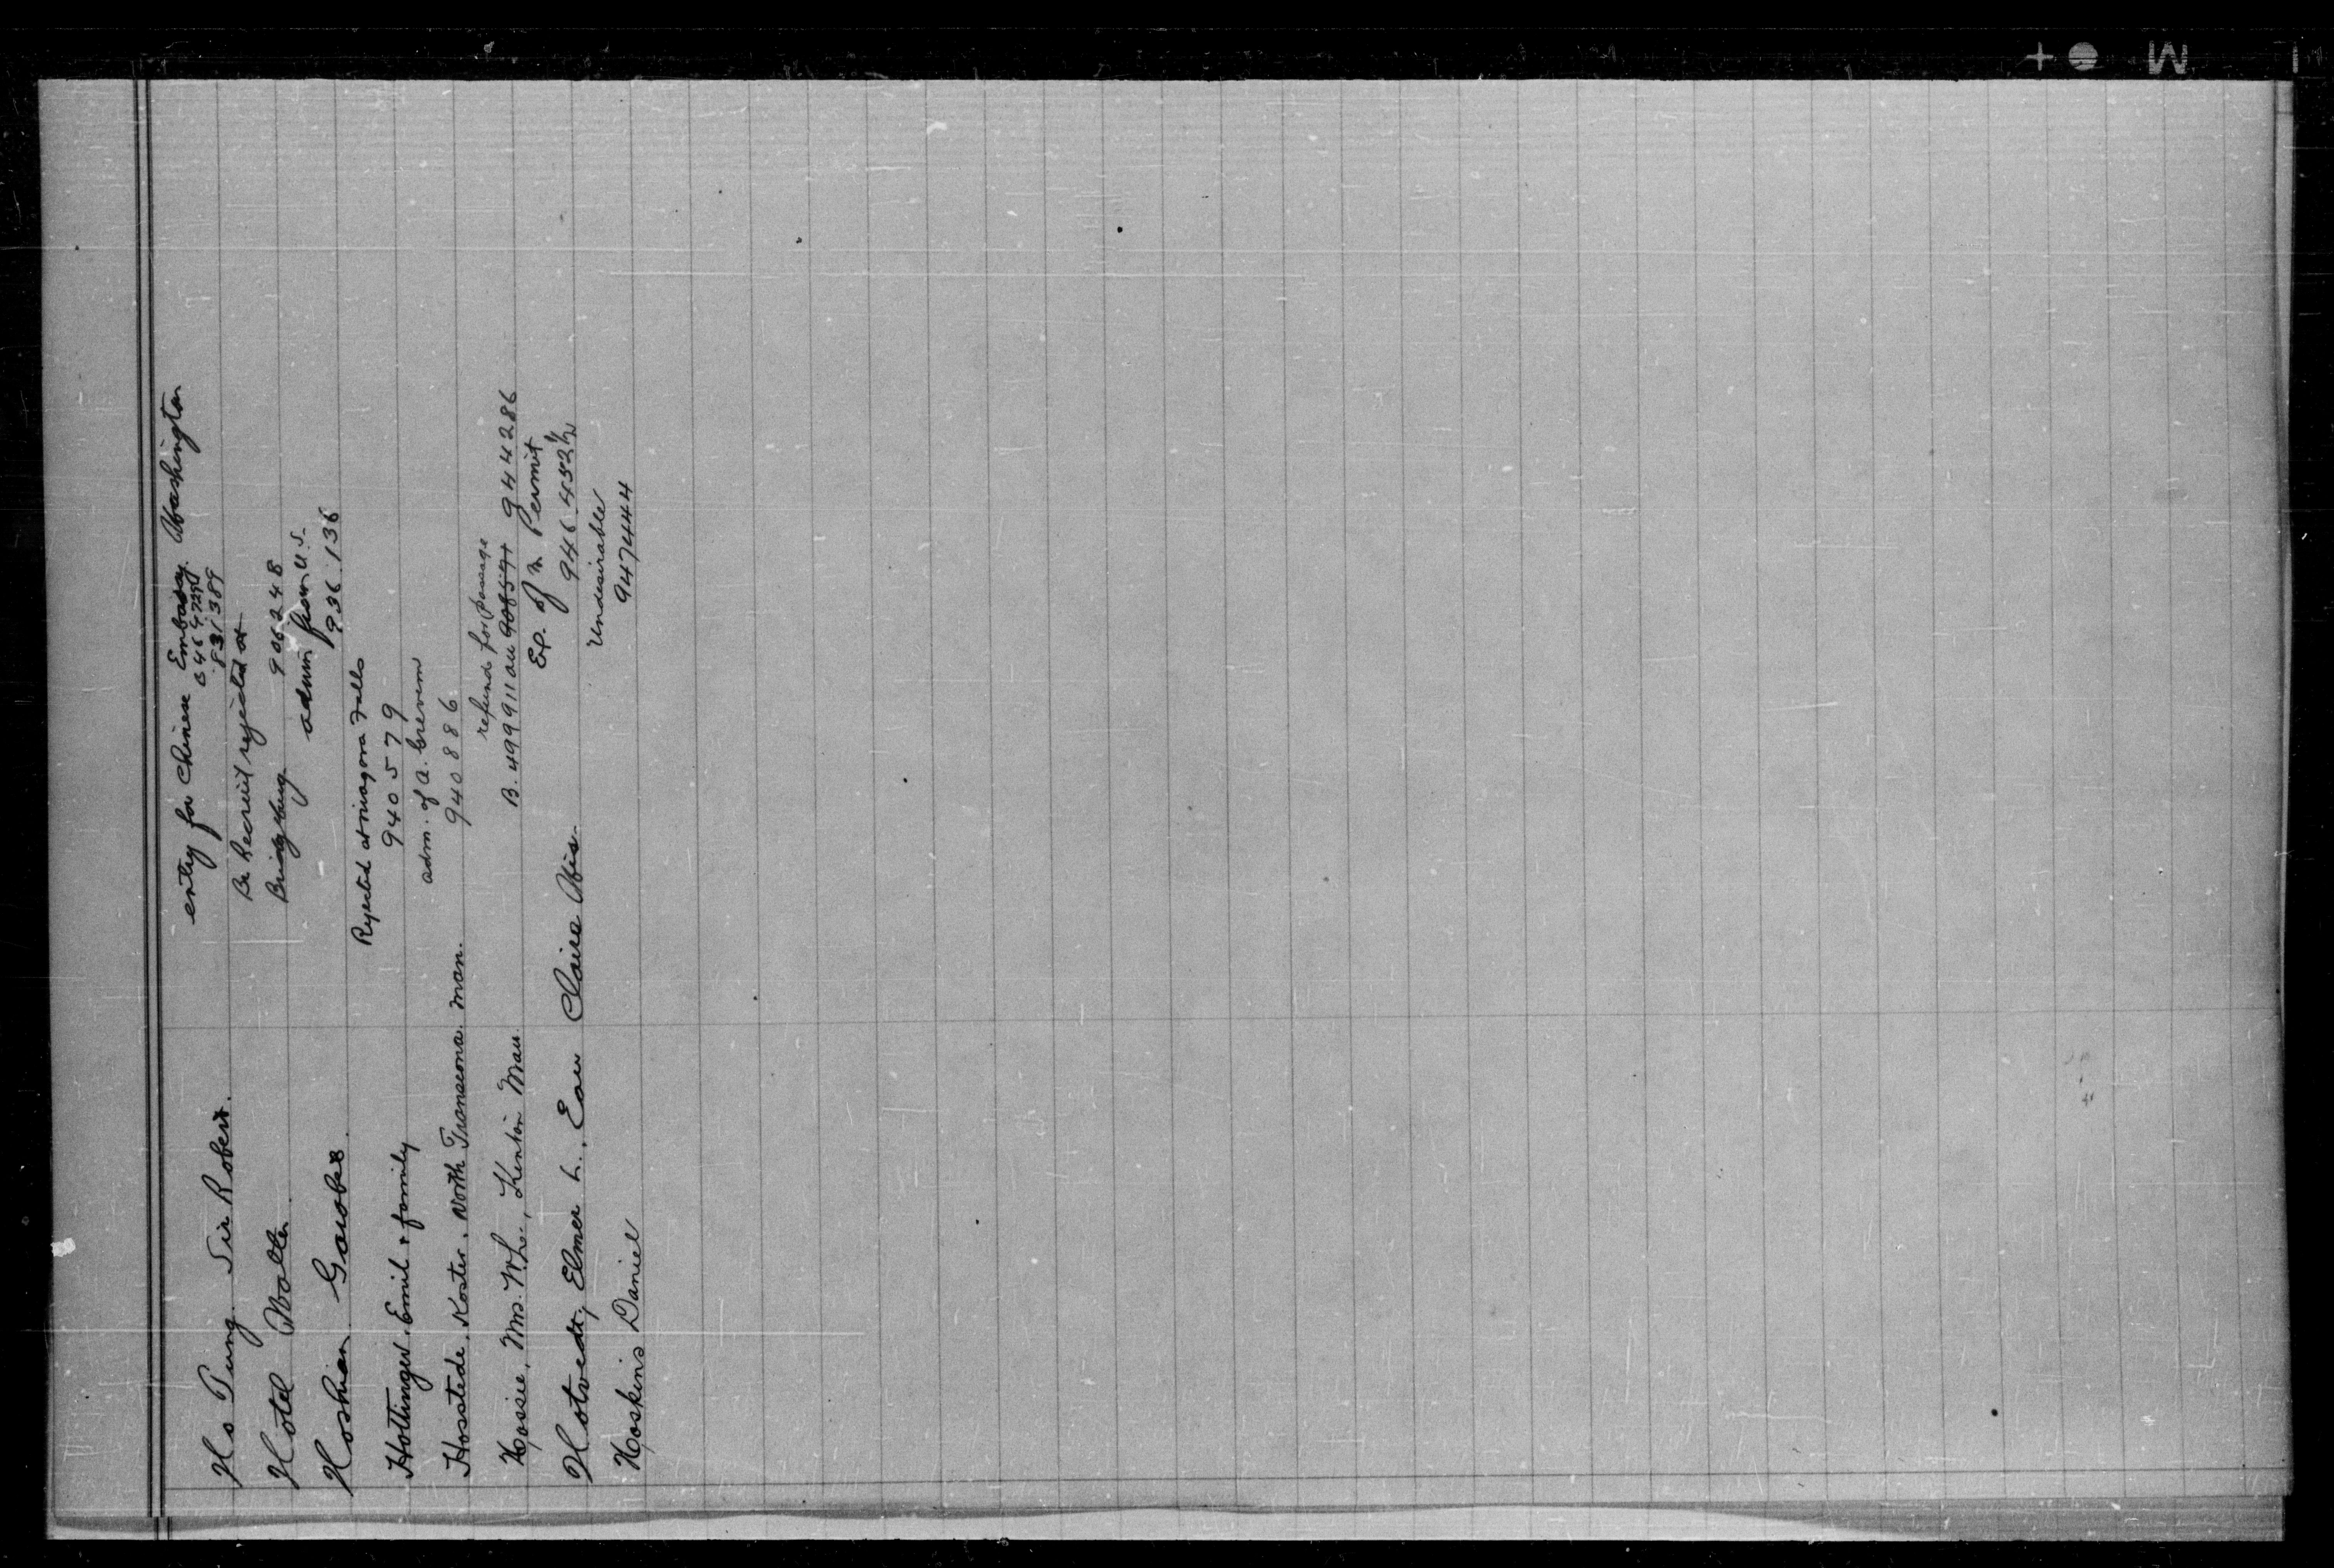 Ho Tung. Sir Robert. entry for Chinese Embassy. Washington
831389
Hotel Walter Be Recruit rejected at
906248
Hoshian admin from U.S.
936136
Hottinger. Emil & family Rejected at Niagara Falls
940579
Hosstede. Koster. North Transcona. Man. adm. of a.
940886
Hossie, Mrs. Wm., Kenton Man refund for passage
B. 499911 944286
Hotvedt, Elmer L., Eau Claire Wis. Ex. of Permit
946.452½
Hoskins Daniel Undesirable
947444